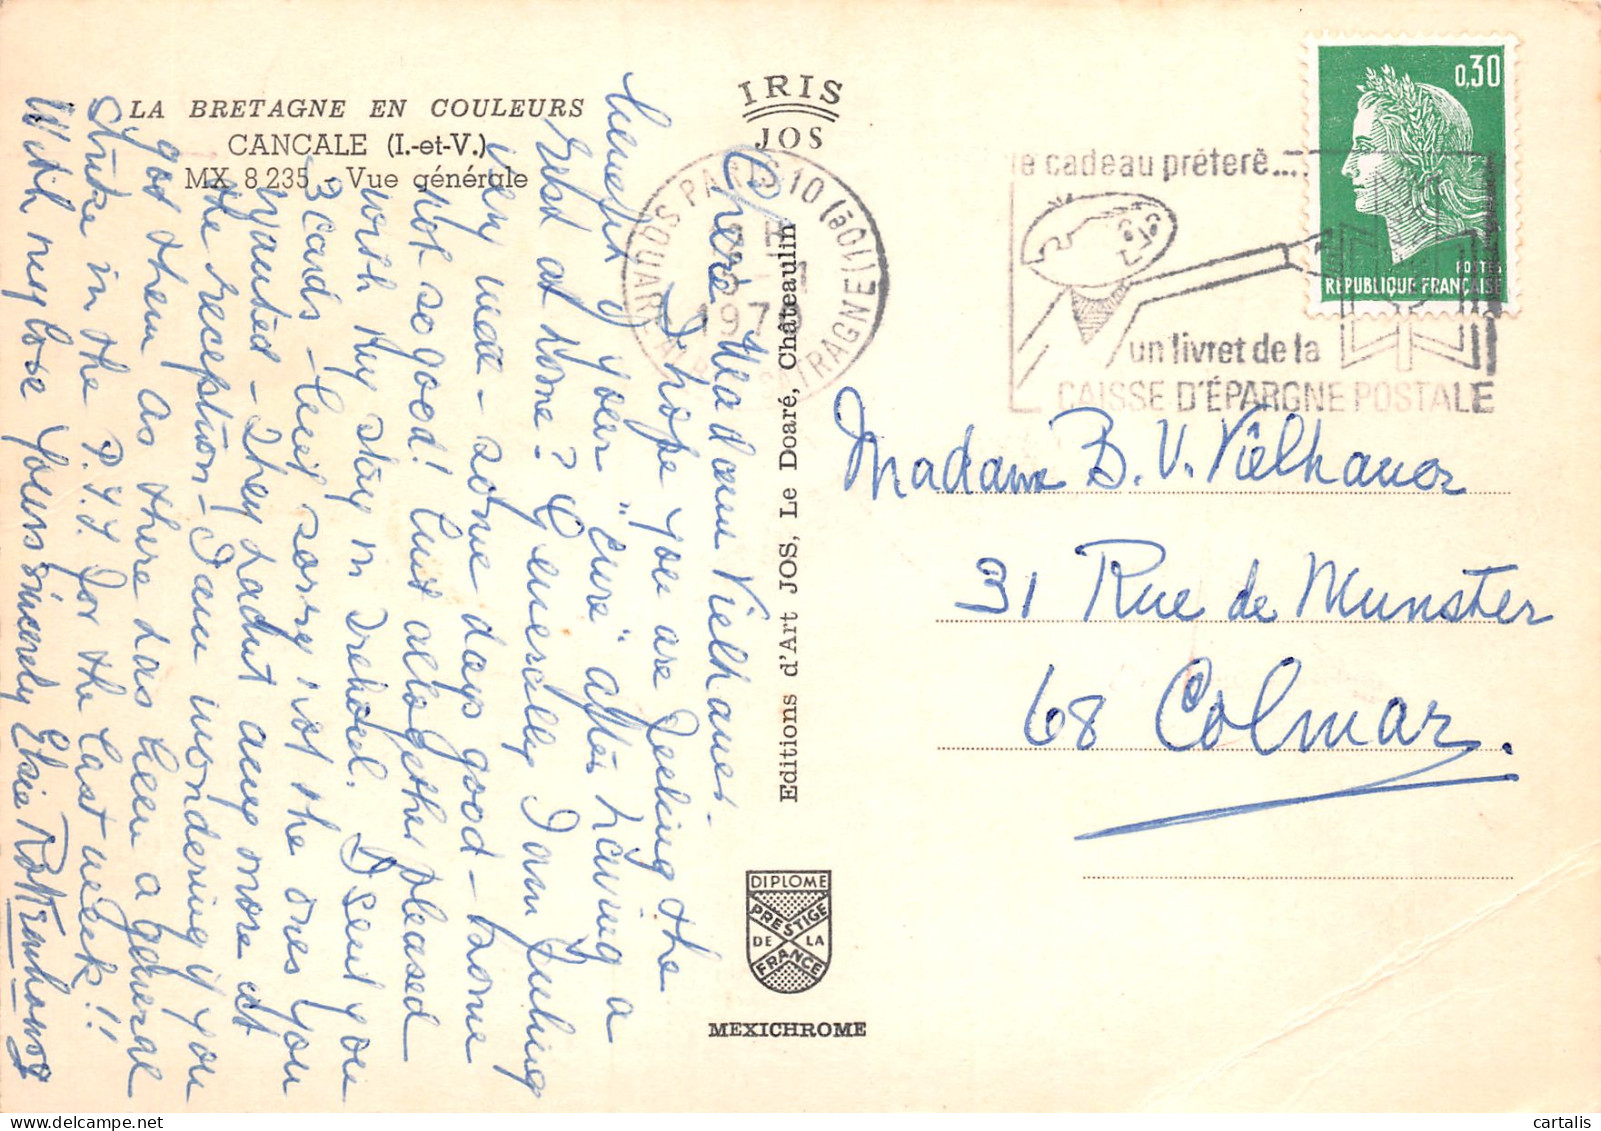 LA BRETAGNE EN COULEURS
CANCALE (I.-et-V.)
MX 8 235 - Vue générale
IRIS
JOS
Editions d'Art JOS, Le Doaré, Châteaulin
DIPLOME
PRESTIGE
DE LA
FRANCE
MEXICHROME
0,30
POSTES
REPUBLIQUE FRANÇAISE
PARIS 10
1970
le cadeau préféré...
un livret de la
CAISSE D'ÉPARGNE POSTALE
Madame B. V. Vielhauer
31 Rue de Munster
68 Colmar.
Chère Madame Vielhauer
I hope you are feeling the
benefit your "cure" after having a
rest at home? Generally I am feeling
very well - some days good - some
not so good! but altogether pleased
with my stay in hotel. I sent you
3 cards - but sorry not the ones you
wanted - They hadn't any more at
the reception - I am wondering if you
got them as there has been a general
strike in the P.T.T. for the last week!!
With my love yours sincerely Elsie
cartalis
© www.delcampe.net